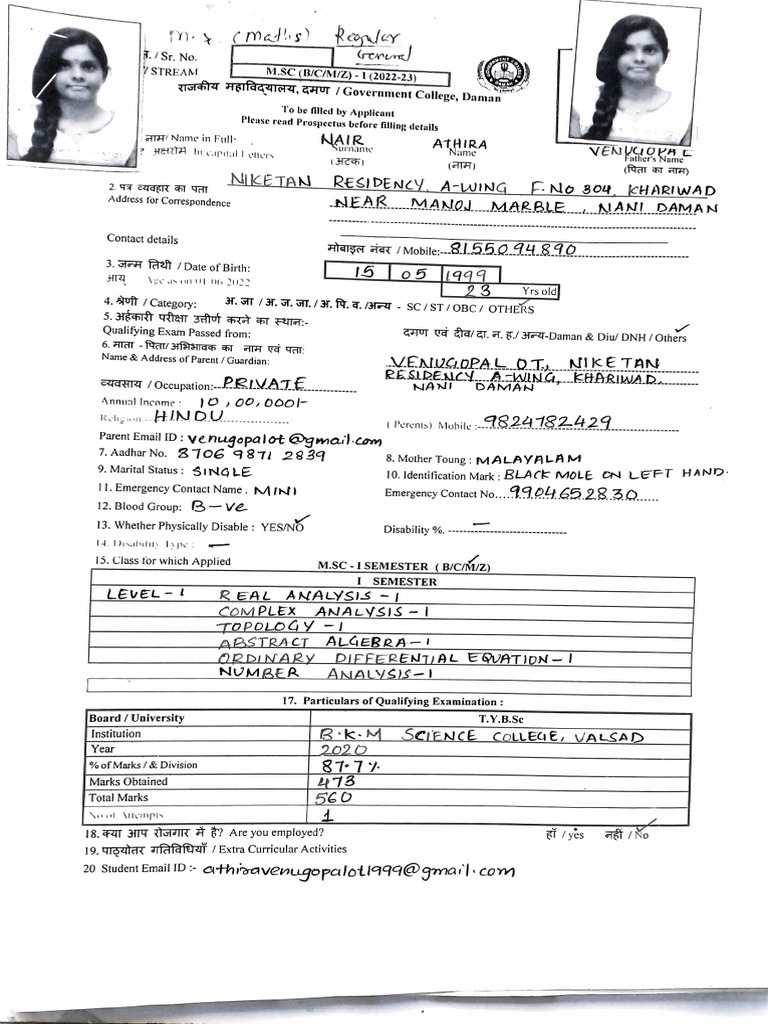 M.X. (Maths) Regular
General
न. / Sr. No.
/ STREAM
M.SC (B/C/M/Z) - I (2022-23)
राजकीय महाविद्यालय, दमण / Government College, Daman
To be filled by Applicant
Please read Prospectus before filling details
नाम/ Name in Full- NAIR ATHIRA VENUGOPAL
अक्षरोमे In capital Letters Surname Name Father's Name
(अटक) (नाम) (पिता का नाम)
2. पत्र व्यवहार का पता NIKETAN RESIDENCY, A-WING F.NO 304, KHARIWAD
Address for Correspondence NEAR MANOJ MARBLE, NANI DAMAN
Contact details मोबाइल नंबर / Mobile:- 8155094890
3. जन्म तिथी / Date of Birth: 15 05 1999
आयु Age as on 01-06-2022 23 Yrs old
4. श्रेणी / Category: अ. जा / अ. ज. जा. / अ. पि. व. /अन्य - SC / ST / OBC / OTHERS
5. अर्हकारी परीक्षा उत्तीर्ण करने का स्थान:-
Qualifying Exam Passed from: दमण एवं दीव/ दा. न. ह./ अन्य-Daman & Diu/ DNH / Others
6. माता - पिता/अभिभावक का नाम एवं पता:
Name & Address of Parent / Guardian: VENUGOPAL O.T., NIKETAN
RESIDENCY A-WING, KHARIWAD,
व्यवसाय / Occupation: PRIVATE NANI DAMAN
Annual Income : 10,00,000/-
Religion HINDU ( Perents) Mobile : 9824782429
Parent Email ID : venugopalot@gmail.com
7. Aadhar No. 8706 9871 2839 8. Mother Toung : MALAYALAM
9. Marital Status : SINGLE 10. Identification Mark : BLACK MOLE ON LEFT HAND.
11. Emergency Contact Name . MINI Emergency Contact No. 9904652830
12. Blood Group: B-ve
13. Whether Physically Disable : YES/NO Disability %. —
14. Disability Type : —
15. Class for which Applied M.SC - I SEMESTER ( B/C/M/Z)
I SEMESTER
LEVEL-1 REAL ANALYSIS -1
COMPLEX ANALYSIS -1
TOPOLOGY -1
ABSTRACT ALGEBRA-1
ORDINARY DIFFERENTIAL EQUATION-1
NUMBER ANALYSIS-1
17. Particulars of Qualifying Examination :
Board / University T.Y.B.Sc
Institution B.K.M SCIENCE COLLEGE, VALSAD
Year 2020
% of Marks / & Division 87.7%
Marks Obtained 473
Total Marks 560
No of Attempts 1
18. क्या आप रोजगार में है? Are you employed? हाँ / yes नहीं / No
19. पाठ्योतर गतिविधियाँ / Extra Curricular Activities
20 Student Email ID :- athiravenugopalot1999@gmail.com